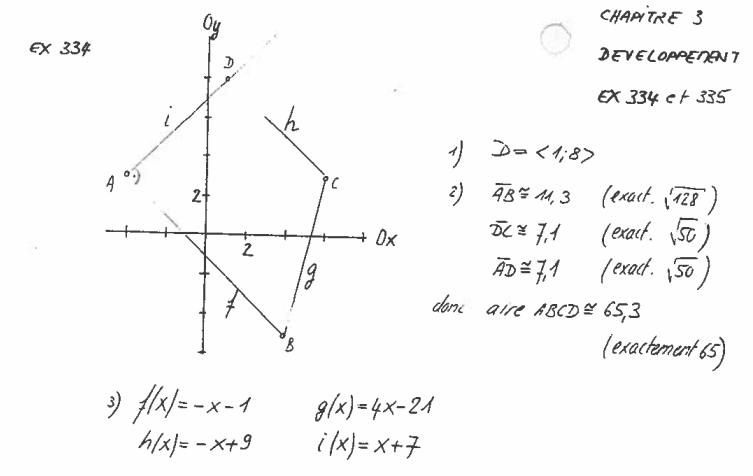 CHAPITRE 3
DEVELOPPEMENT
EX 334 et 335
EX 334
Oy
D
i
h
A
C
2
Ox
2
g
f
B
1) D = <1;8>
2) AB ≅ 11,3 (exact. √128)
DC ≅ 7,1 (exact. √50)
AD ≅ 7,1 (exact. √50)
donc aire ABCD ≅ 65,3
(exactement 65)
3) f(x) = -x-1 g(x) = 4x-21
h(x) = -x+9 i(x) = x+7